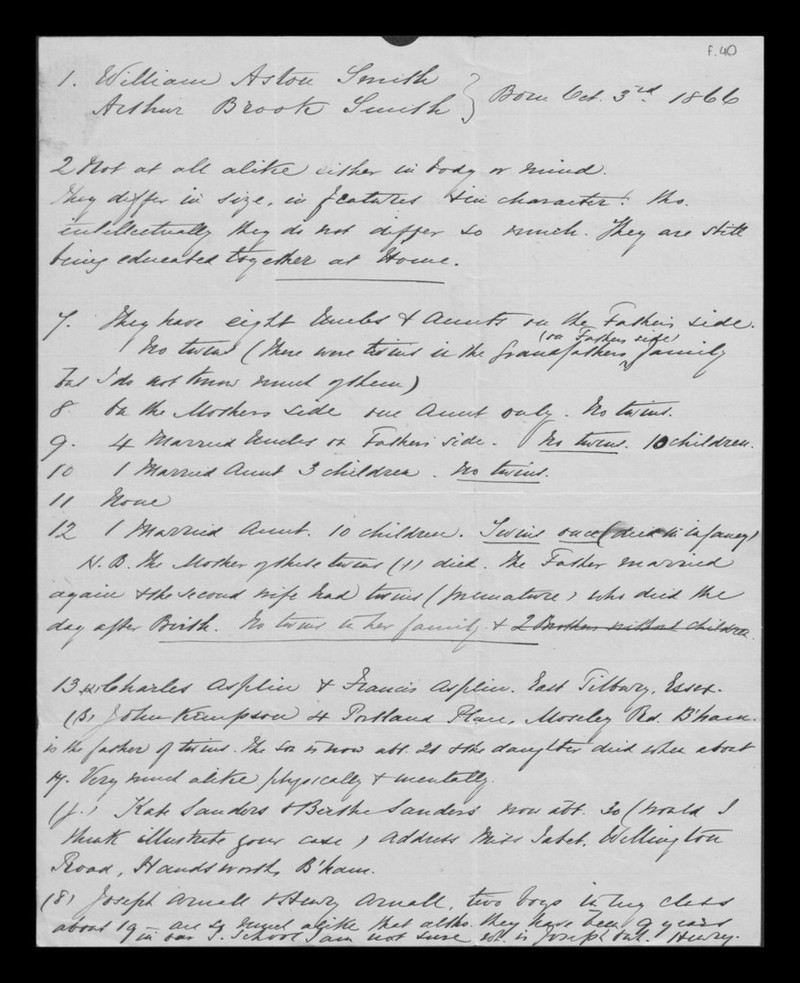 f.40
1. William Aston Smith
Arthur Brook Smith } Born Oct. 3rd 1866
2 Not at all alike either in body or mind.
They differ in size, in features & in character: tho.
intellectually they do not differ so much. They are still
being educated together at Home.
7. They have eight Uncles & Aunts on the Father's side.
No twins (there were twins in the Grandfathers (on Fathers side) family
but I do not know much of them)
8 On the Mothers side one Aunt only. No twins.
9. 4 Married Uncles on Father's side. No twins. 10 children.
10 1 Married Aunt 3 children. No twins.
11 None
12 1 Married Aunt. 10 children. Twins once (died in infancy)
N.B. The Mother of these twins (1) died. The Father married
again & the second wife had twins (premature) who died the
day after Birth. No twins in her family & 2 Brothers without children.
13 Charles Asplin & Francis Asplin. East Tilbury, Essex.
(3) John Kempson 4 Portland Place, Moseley Rd. B'ham.
is the father of twins. The Son is now abt. 21 & the daughter died when about
17. Very much alike physically & mentally.
Kate Sanders & Berthe Sanders now abt. 20 (would I
think illustrate your case) Address Miss Wellington
Road, Handsworth, B'ham.
(8) Joseph Arnall & Henry Arnall, two boys in my class
about 19 – are so much alike that altho. they have been 9 years
in our S. School I am not sure wh. is Joseph but Henry.